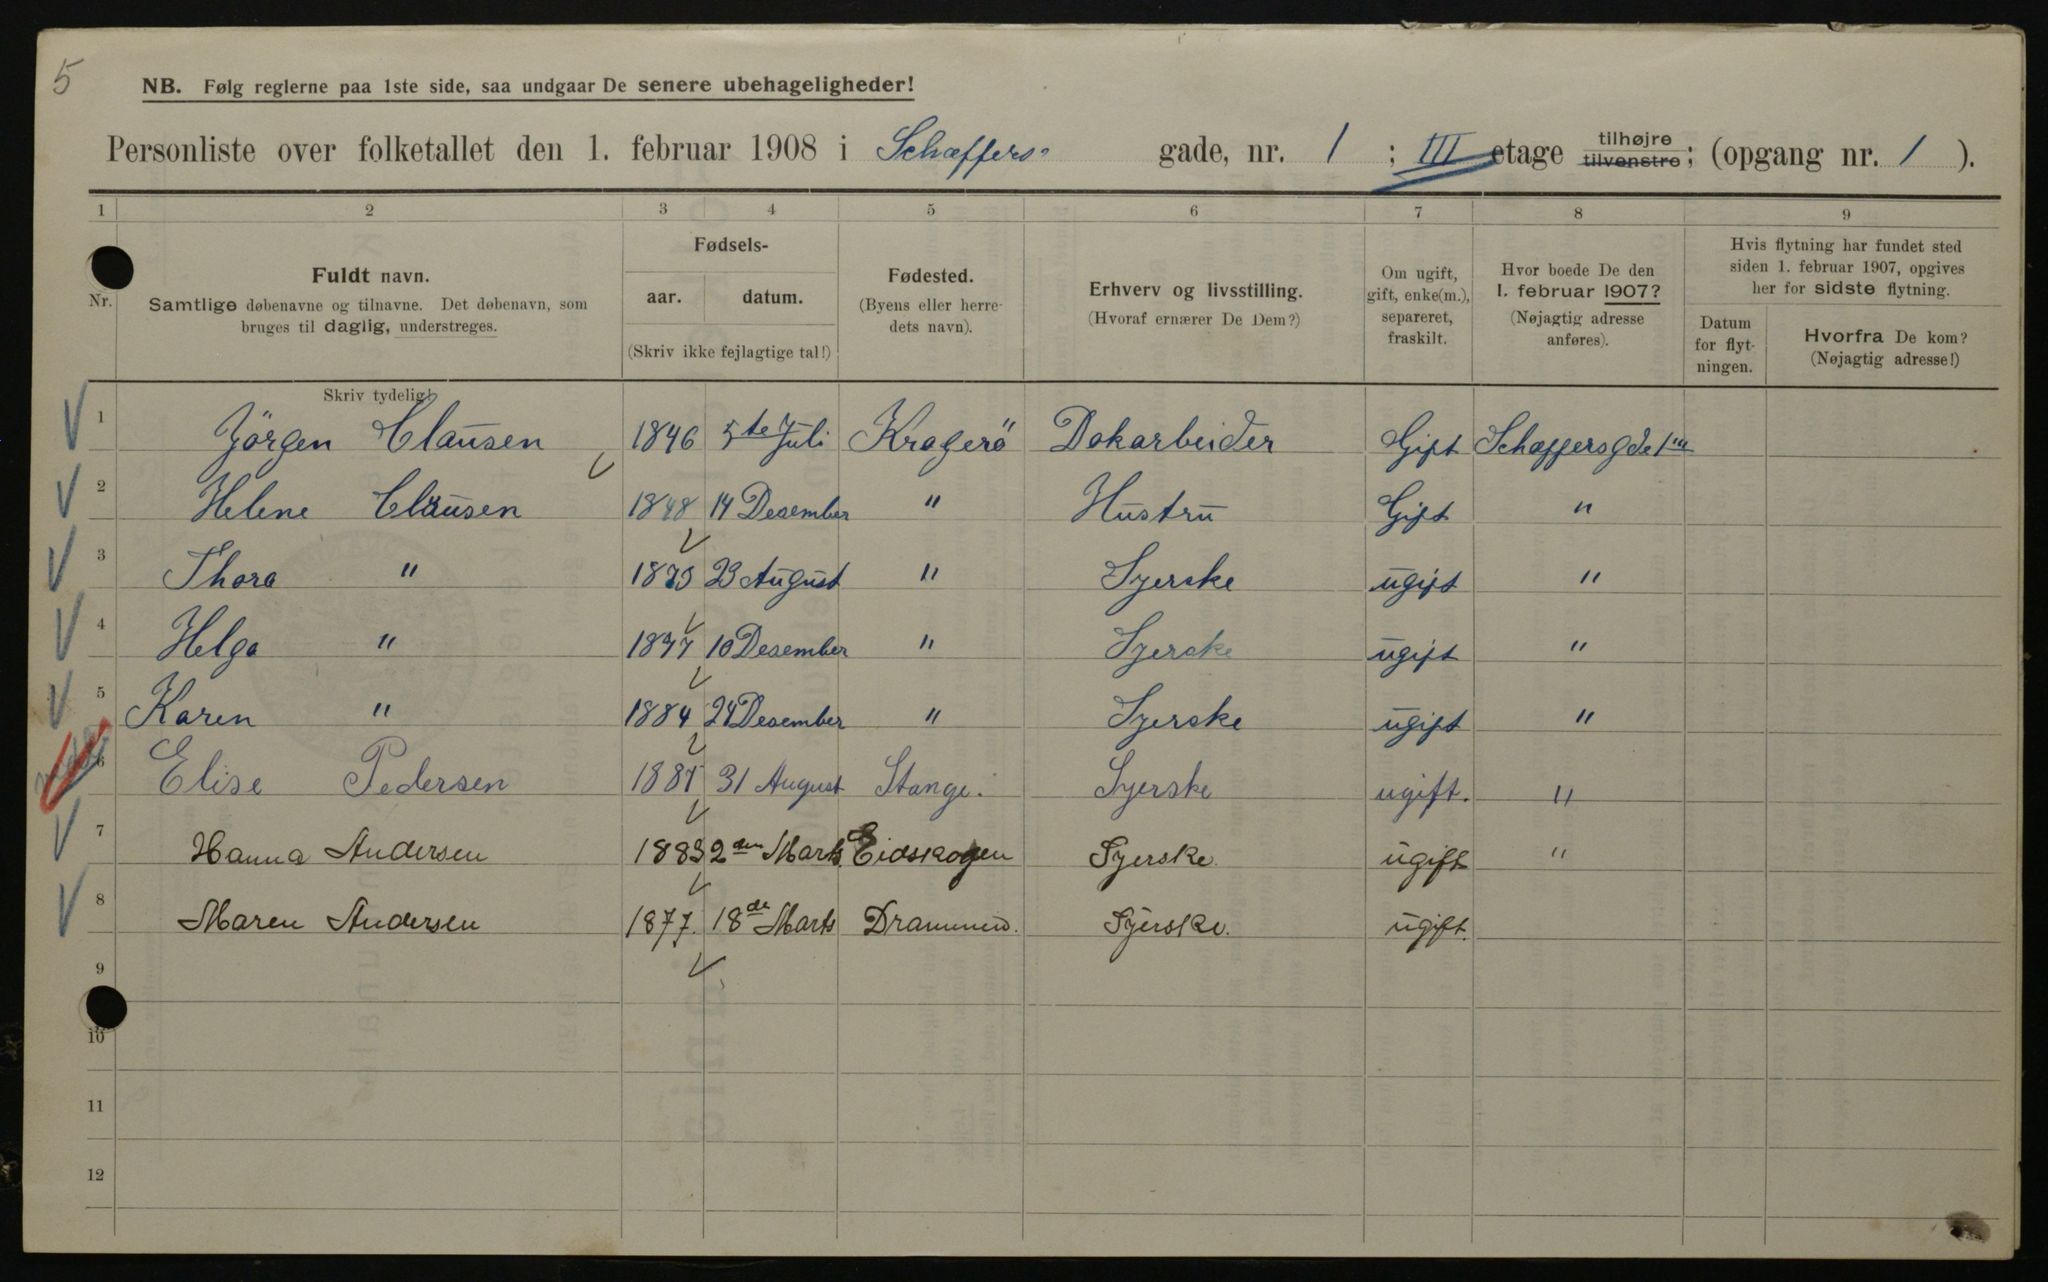 5
NB. Følg reglerne paa 1ste side, saa undgaar De senere ubehageligheder!
Personliste over folketallet den 1. februar 1908 i Schæffers gade, nr. 1 ; III etage tilhøjre tilvenstre; (opgang nr. 1 ).
1 2 3 4 5 6 7 8 9
Nr.
Fuldt navn.
Samtlige døbenavne og tilnavne. Det døbenavn, som
bruges til daglig, understreges.
Fødsels-
aar. datum.
(Skriv ikke fejlagtige tal!)
Fødested.
(Byens eller herre-
dets navn).
Erhverv og livsstilling.
(Hvoraf ernærer De Dem?)
Om ugift,
gift, enke(m.),
separeret,
fraskilt.
Hvor boede De den
1. februar 1907?
(Nøjagtig adresse
anføres).
Hvis flytning har fundet sted
siden 1. februar 1907, opgives
her for sidste flytning.
Datum
for flyt-
ningen.
Hvorfra De kom?
(Nøjagtig adresse!)
Skriv tydelig!
1 Jörgen Clausen 1846 5te Juli Kragerö Dokarbeider Gift Schæffersgde 1
2 Helene Clausen 1848 14 Desember " Hustru Gift "
3 Thora " 23 August " Syerske ugift "
4 Helga " 10 Desember " Syerske ugift "
5 Karen " 1884 24 Desember " Syerske ugift "
6 Elise Pedersen 31 August Stange. Syerske ugift. "
7 Hanna Andersen 1883 2den Marts. Eidskogen Syerske. ugift "
8 Maren Andersen 1877. 18de Marts Drammen. Syerske. ugift.
9
10
11
12